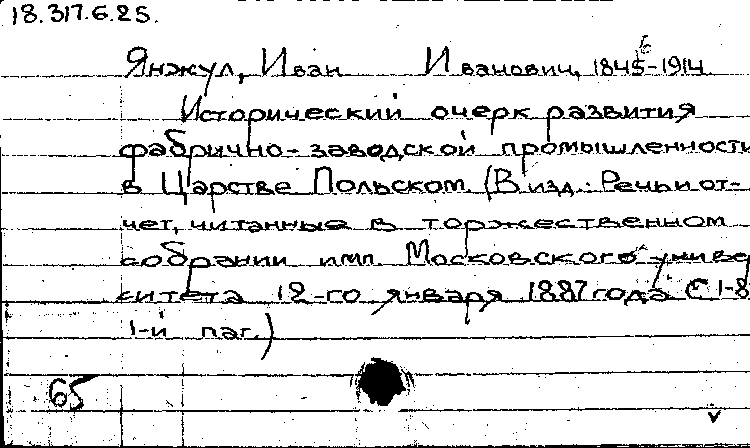 18.317.6.25.
Янжул, Иван Иванович, 1845-1914
6
Исторический очерк развития
фабрично-заводской промышленности
в Царстве Польском. (В изд.: Речь и от-
чет, читанные в торжественном
собрании имп. Московского универ
ситета 12-го января 1887 года С 1-8
1-й паг.)
65